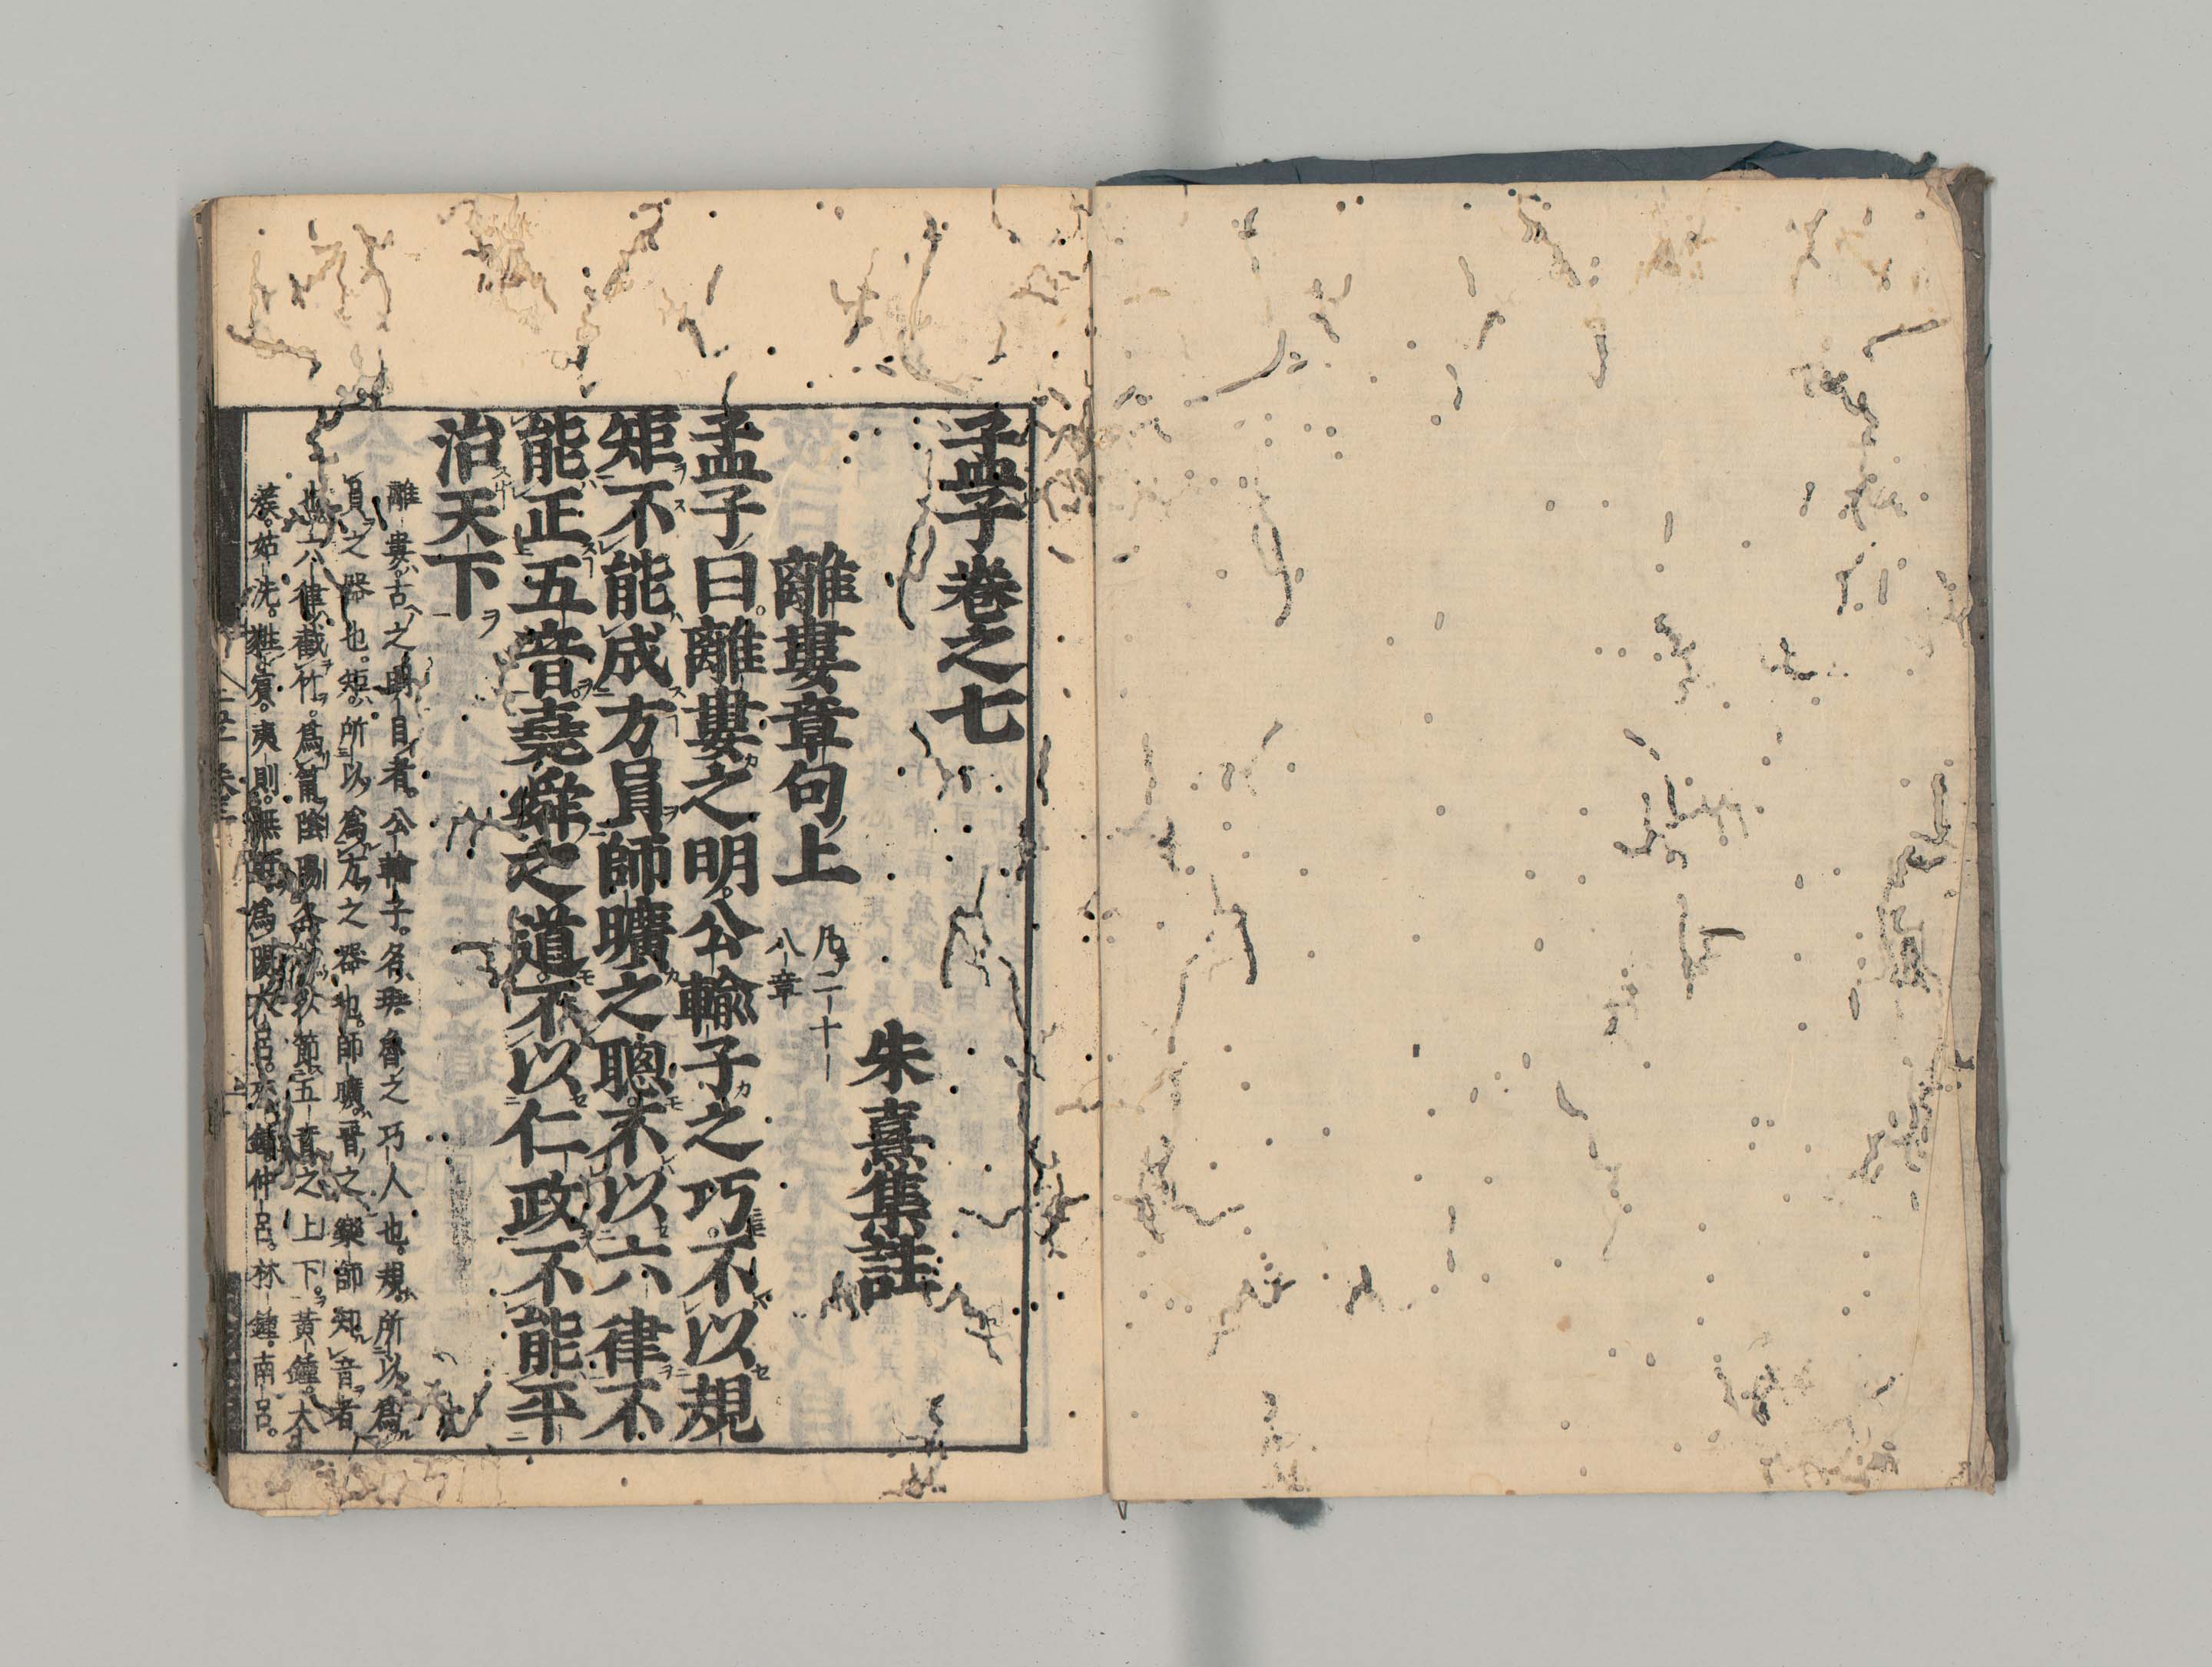 孟子卷之七
朱熹集註
離婁章句上
凡二十
八章
孟子曰離婁之明公輸子之巧不以規
矩不能成方員師曠之聰不以六律不
能正五音堯舜之道不以仁政不能平
治天下
離婁。古之明目者。公輸子。名班。魯之巧人也。規。所以爲
員之器也。矩。所以爲方之器也。師曠。晉之樂師知音者
也。六律。截竹。爲筩陰陽各以節五音之上下。黃鍾。大
蔟。姑洗。蕤賓。夷則。無射。爲陽大呂。夾鍾。仲呂。林鍾。南呂。